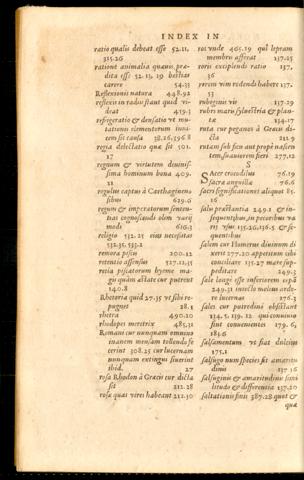 INDEX IN
ratio qualis debeat esse 52.11,
315.26
rationē animalia quævis præ-
dita esse 52.13, 19 bestias
carere 54.33
Reflexionis natura 448.92
reflexis in radiis stant quid vi-
deat 419.3
refrigeratio & densatio vt mu-
tationis elementorum iuni-
cem sit causa 38.26,396.8
regia delectatio quæ sit 501.
17
regnum & virtutem deunis-
sima hominum bona 409.
21
regulus captus à Carthaginen-
sibus 629.6
regum & imperatorum senten-
tias cognoscendi olim varij
modi 616.3
religio 532.25 eius necessitas
532.35, 535.2
remora piscis 200.12
retentio assensus 527.12,35
retia piscatorum hyeme ma-
gis quàm æstate cur putreant
140.8
Rhetoria quid 27.35 vt sibi re-
pugnet 28.1
rhetra 490.20
rhodopes meretrix 485.31
Romani cur nunquam omnino
inanem mensam tollendā fe
cerint 308.25 cur lucernam
nunquam extingui siuerint
ibid. 27
rosa Rhodon à Græcis cur dicta
sit 212.28
rosa quas vires habeat 212.30
ros vnde 405.19 qui lepram
membris afferat 137.25
roris excipiendi ratio 137.
36
rerem vim rodendi habere 137.
33
rubiginis vis 137.29
rubus maru sylvestria & plan-
tæ 134.17
ruta cur peganos à Græcis di-
cta 212.9
rutam sub ficu aut propè nascen
tem, suauiorem fieri 277.12
S
SAcer crocodilus 76.19
Sacra anguilla 76.6
sacri significationes aliquot 85.
16
salis præstantia 249.1 & in-
sequentibus, in pecoribus va
res vsus 155.26,156.5 & se-
quentibus
salem cur Homerus diuinum di
xerit 277.20 appetitum cibi
conciliare 155.27 mare sup-
peditare 249.3
sale longè esse inferiorem vspā
249.31 infecto melius arde-
re lucernas 276.3
sales cur putredini obsistant
134.5, 139.12 qui conuiuio
sint conuenientes 179.6,
184.6
salsamentum vt fiat dulcius
175.2
salsugo num species sit amaritu
dinis 137.36
salsuginis & amaritudinis simi
litudo & differentia 137.20
saltationis finis 387.28 quot &
quæ